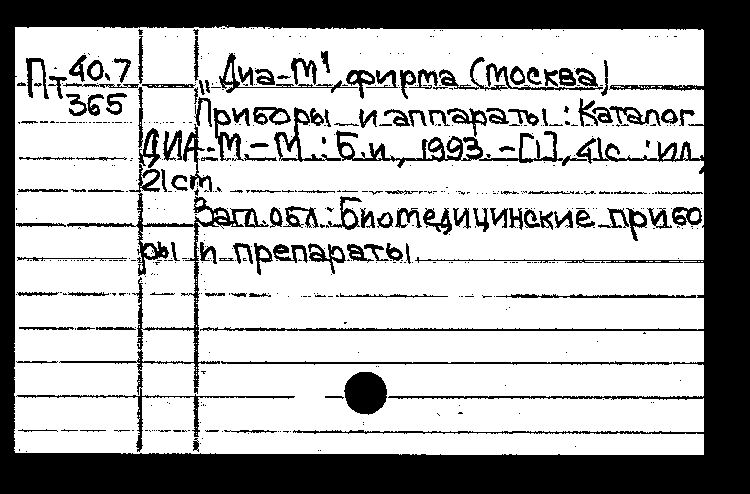 Пт 40.7
365
„Диа-М", фирма (Москва)
Приборы и аппараты : Каталог
ДИА-М.-М.: Б.и., 1993.-[1], 41с. : ил.;
21cm.
Загл. обл.: Биомедицинские прибо
ры и препараты.